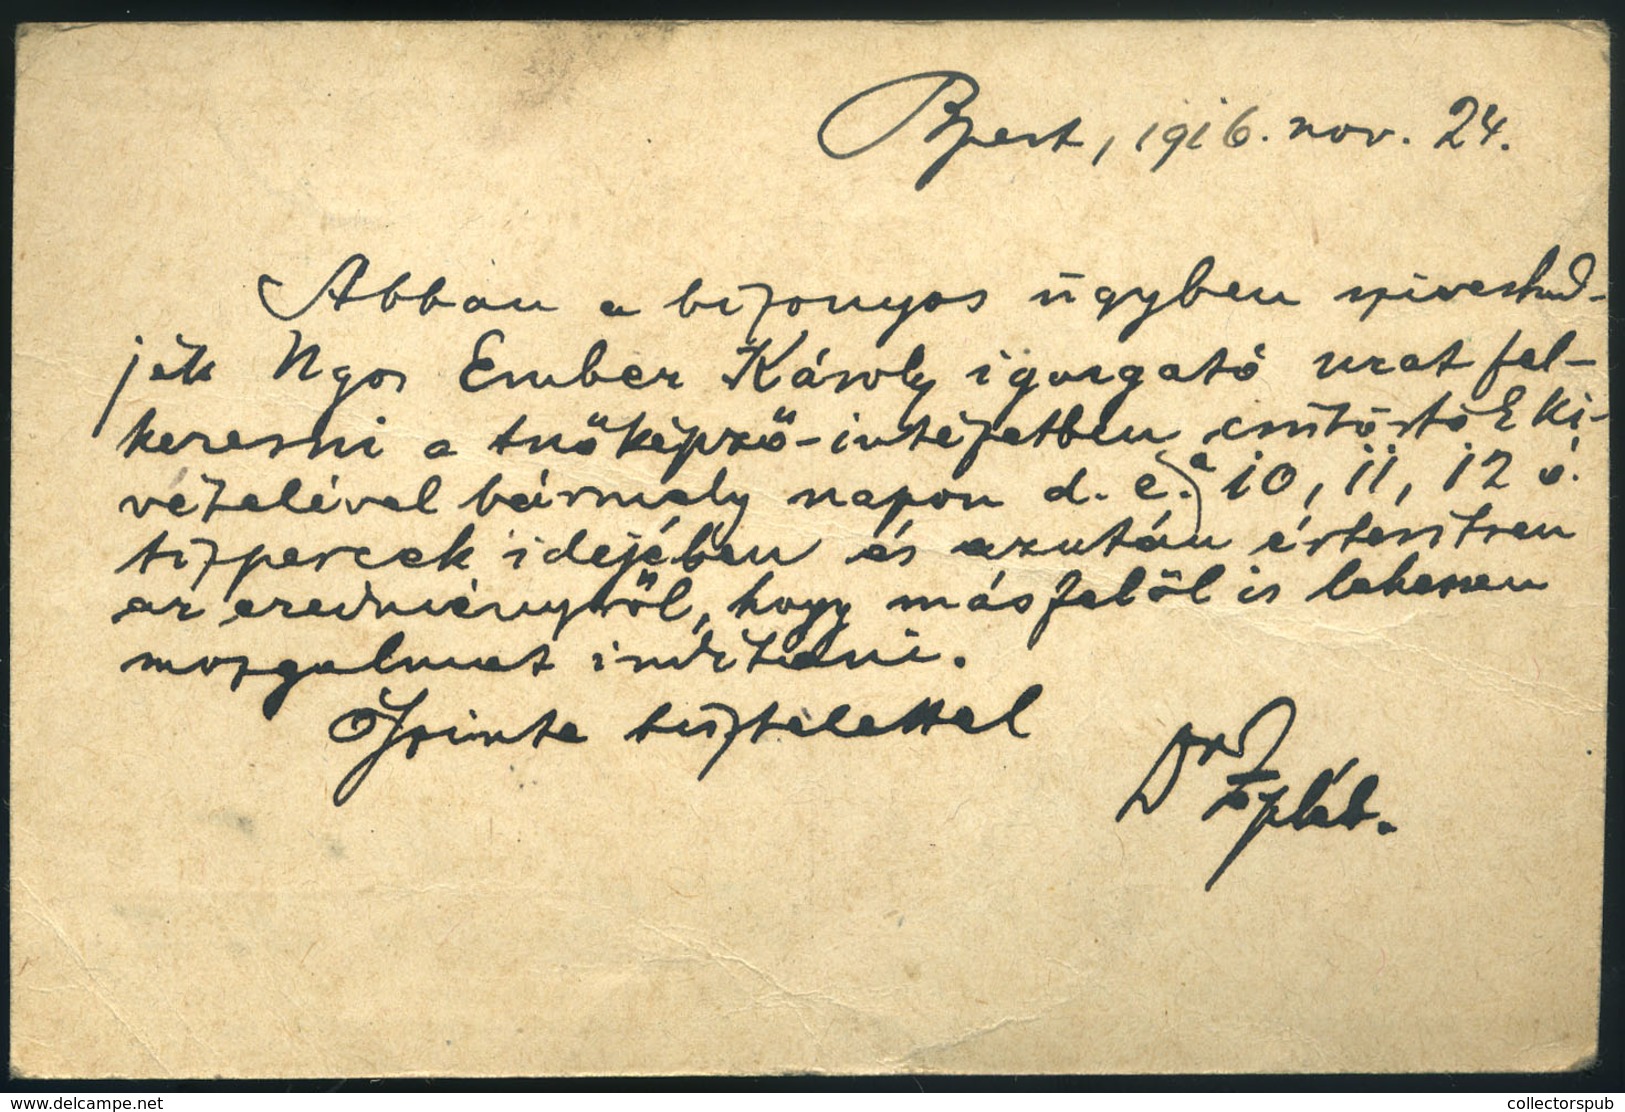 Bpest, 1916. nov. 24.
Abban a bizonyos ügyben szivesked-
jék Ngos Ember Károly igazgató urat fel-
keresni a tnőképző-intézetben csütörtök ki-
vételével bármely napon d. e. a 10, 11, 12 ó.
tizpercek idejében és azután értesitsen
az eredményről, hogy másfelől is lehessen
mozgalmat inditani.
Őszinte tisztelettel
Dr
www.delcampe.net
collectorspub